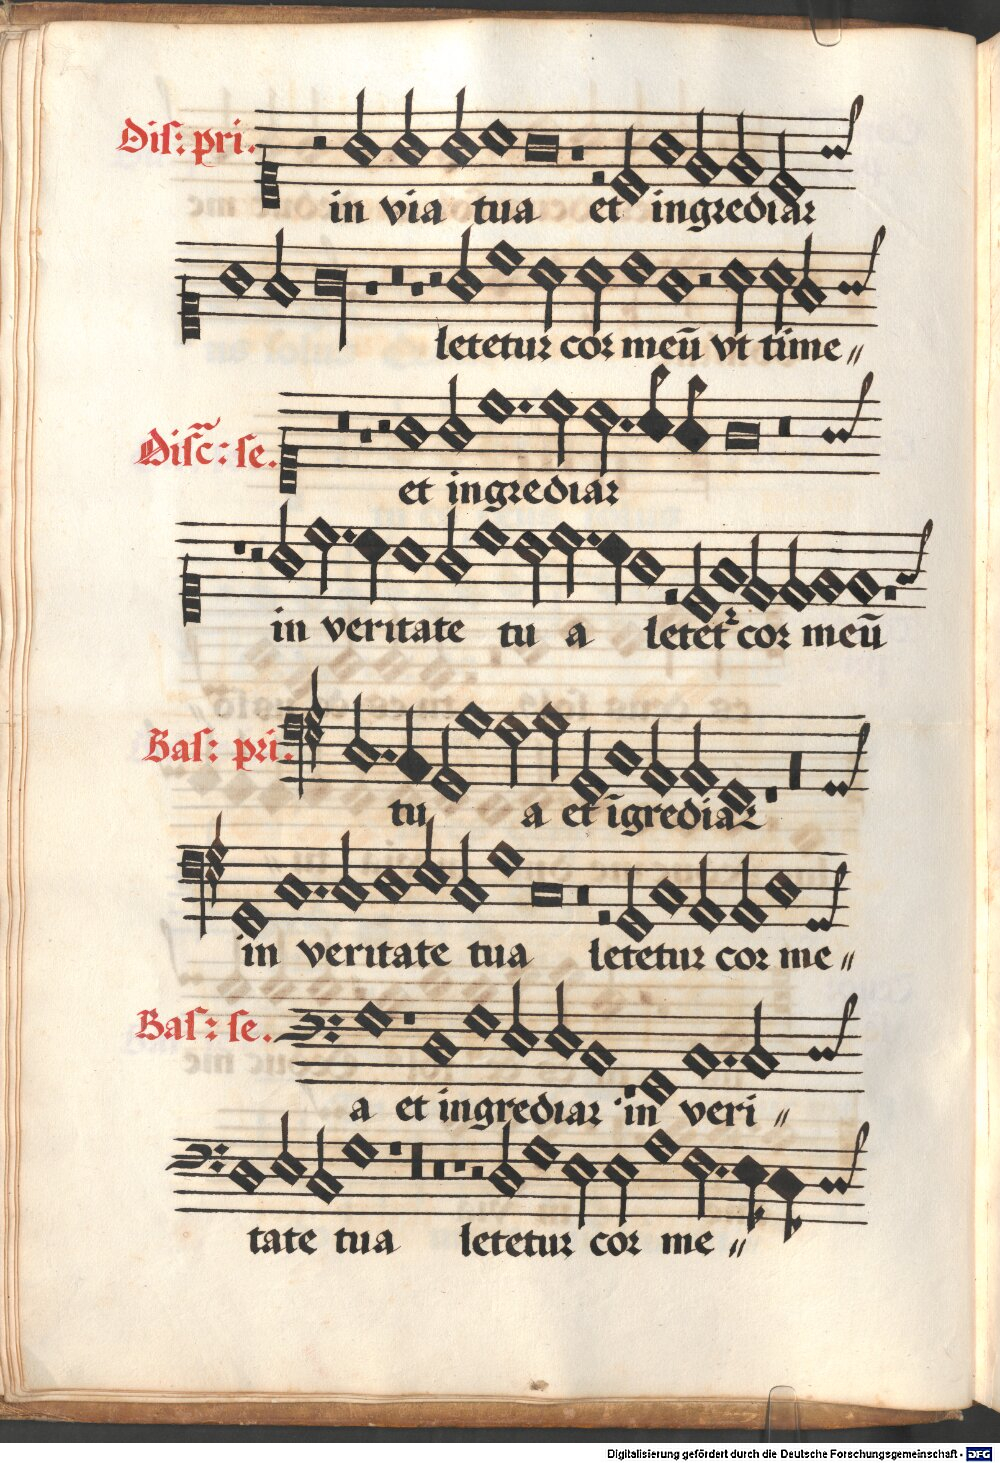 Dis: pri.
in via tua et ingrediar
letetur cor meū vt time〃
Disc̄: se.
et ingrediar
in veritate tu a letetꝛ cor meū
Bas: pri.
tu a et īgrediar
in veritate tua letetur cor me〃
Bas: se.
a et ingrediar in veri〃
tate tua letetur cor me〃
Digitalisierung gefördert durch die Deutsche Forschungsgemeinschaft - DFG